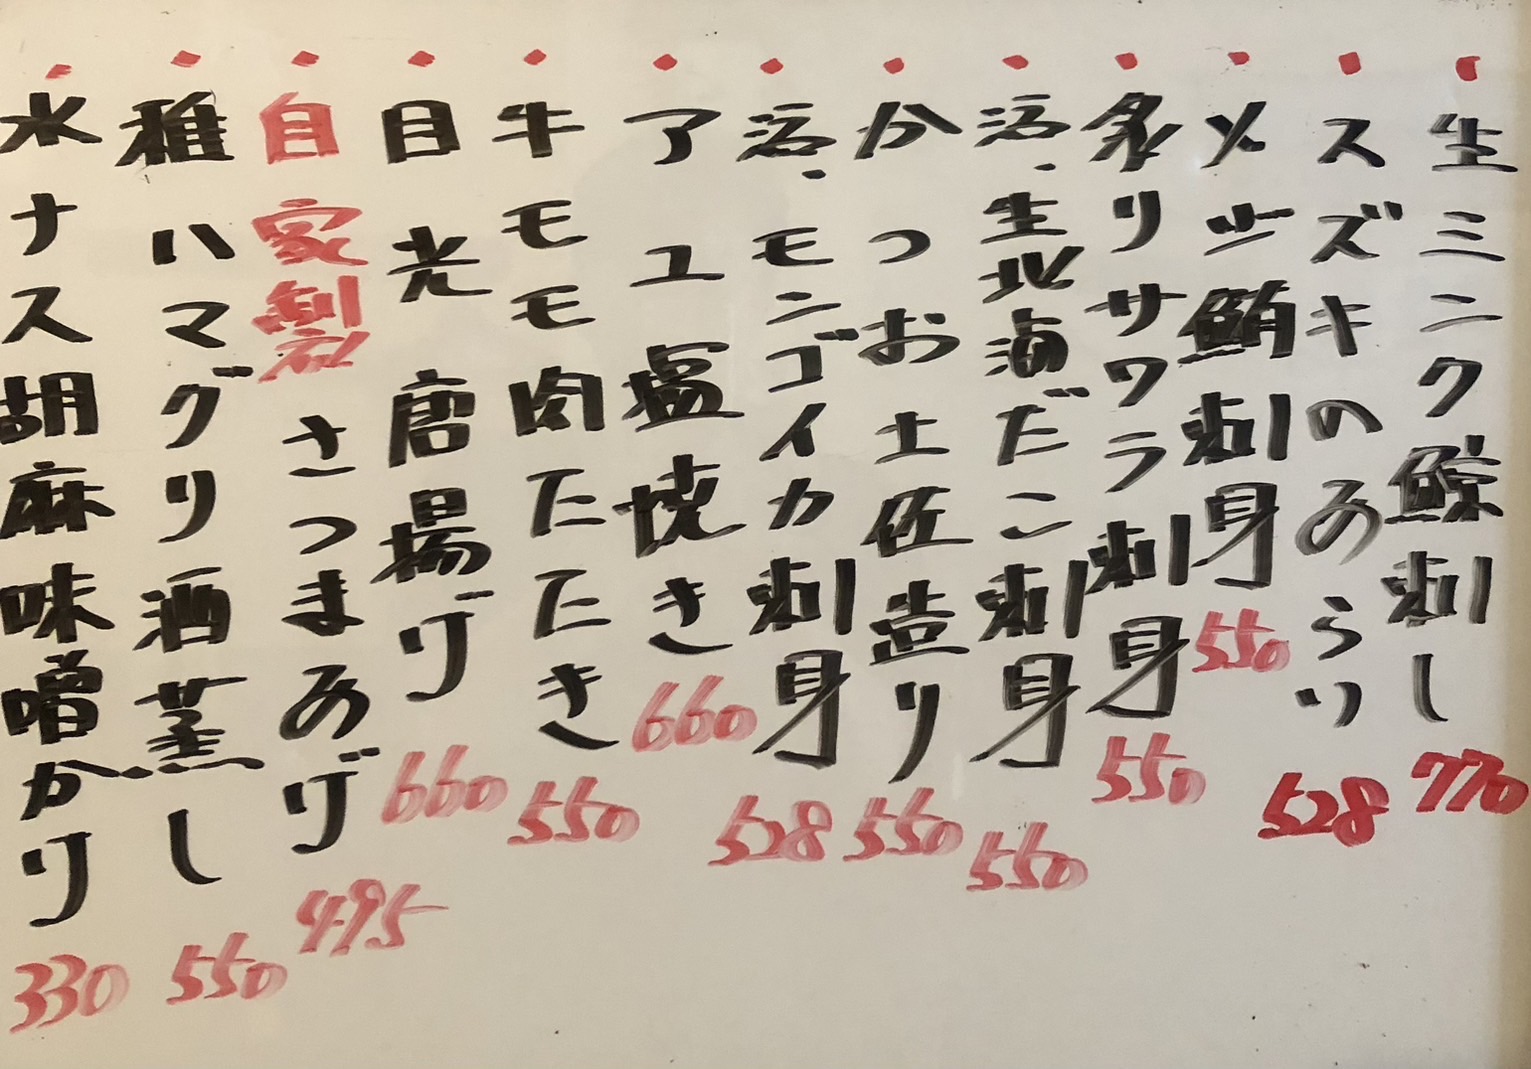 ・生ミンク鯨刺し 770
・スズキのあらい 528
・メジ鮪刺身 550
・炙りサワラ刺身 550
・活、生北海だこ刺身 550
・かつお土佐造り 550
・活、モンゴイカ刺身 528
・アユ塩焼き 660
・牛モモ肉たたき 550
・目光唐揚げ 660
・自家製さつまあげ 495
・稚ハマグリ酒蒸し 550
・水ナス胡麻味噌かけ 330